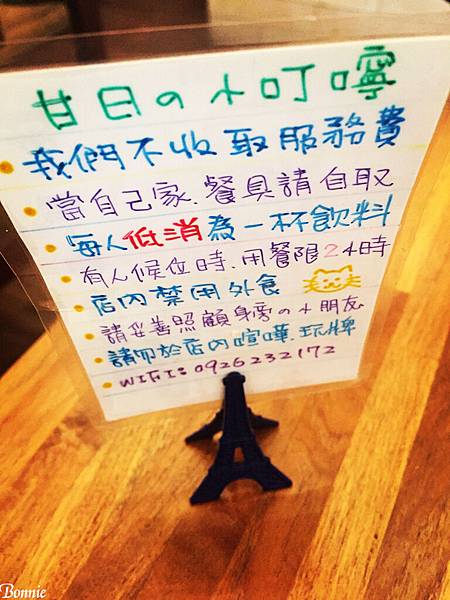 甘日の小叮嚀
我們不收取服務費
當自己家.餐具請自取
每人低消為一杯飲料
有人候位時.用餐限2小時
店內禁用外食
請妥善照顧身旁の小朋友
請勿於店內喧嘩.玩牌
WIFI:0926232172
Bonnie